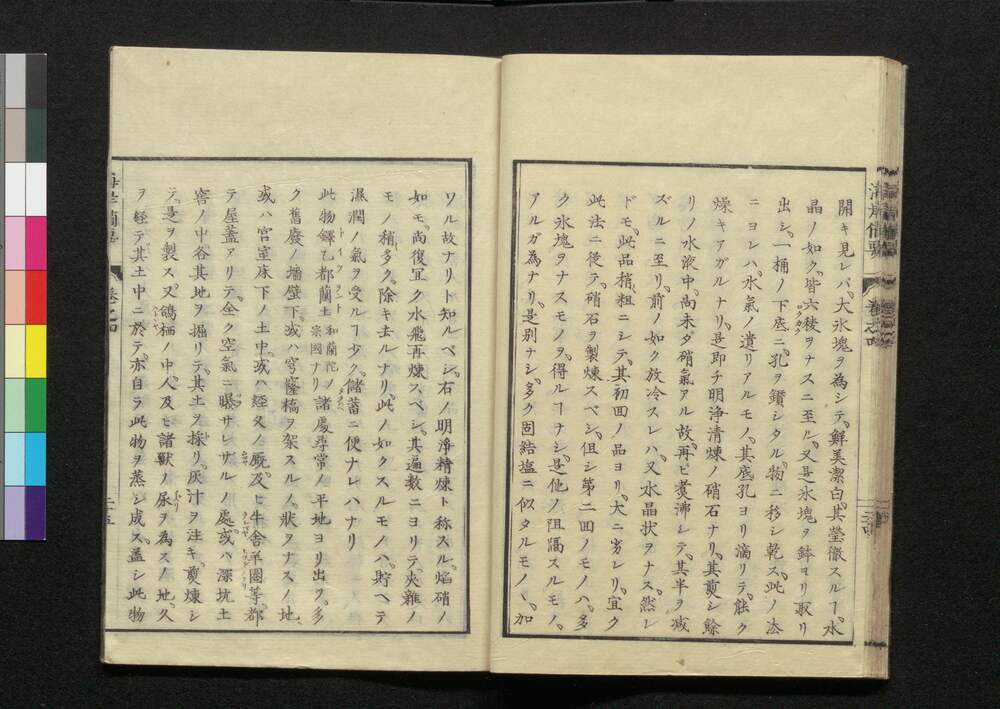 開キ見レバ、大氷塊ヲ為シテ、鮮美潔白、其瑩徹スルヿ、水
晶ノ如ク、皆六稜ヲナスニ至ル、又是氷塊ヲ鉢ヨリ取リ
出シ、一桶ノ下底ニ、孔ヲ鑽シタル物ニ移シ乾ス、此ノ法
ニヨレハ、水氣ノ遺リアルモノ、其底孔ヨリ滴リテ、能ク
燥キアガルナリ、是即チ明浄清煉ノ硝石ナリ、其煎シ餘
リノ水液中、尚未ダ硝氣アル故、再ヒ煮沸シテ、其半ヲ減
ズルニ至リ、前ノ如ク放冷スレハ、又水晶状ヲナス、然レ
ドモ、此品稍粗ニシテ、其初回ノ品ヨリ、大ニ劣レリ、宜ク
此法ニ從テ、硝石ヲ製煉スベシ、但シ第二回ノモノハ、多
ク氷塊ヲナスモノヲ、得ルヿナシ、是他ノ阻隔スルモノ、
アルガ為ナリ、是別ナシ、多ク固結塩ニ似タルモノヽ、加
ワル故ナリト知ルベシ、石ノ明浄精煉ト称スル、焔硝ノ
如モ、尚復宜ク水飛再煉スベシ、其遍数ニヨリテ、夾雜ノ
モノ、稍多ク、除キ去ルナリ、此ノ如クスルモノハ、貯ヘテ
濕潤ノ氣ヲ受ルヿ少ク、儲蓄ニ便ナレハナリ
此物、鐸乙都蘭土 和蘭陀ノ宗國ナリ 諸處尋常ノ平地ヨリ出ツ、多
ク舊廢ノ墻壁下、或ハ穹窿橋ヲ架スルノ、状ヲナスノ地、
或ハ宮室床下ノ土中、或ハ経久ノ廐、及ヒ牛舎羊圏等、都
テ屋蓋アリテ、全ク空氣ニ曝サレザルノ處、或ハ深坑土
窖ノ中、各其地ヲ掘リテ、其土ヲ採リ、灰汁ヲ注キ、煎煉シ
テ、是ヲ製ス、又鴿栖ノ中、人及ヒ諸獣ノ尿ヲ為スノ地、久
ヲ経テ、其土中ニ於テ、亦自ラ此物ヲ蒸シ成ス、蓋シ此物
卷之四
二十五